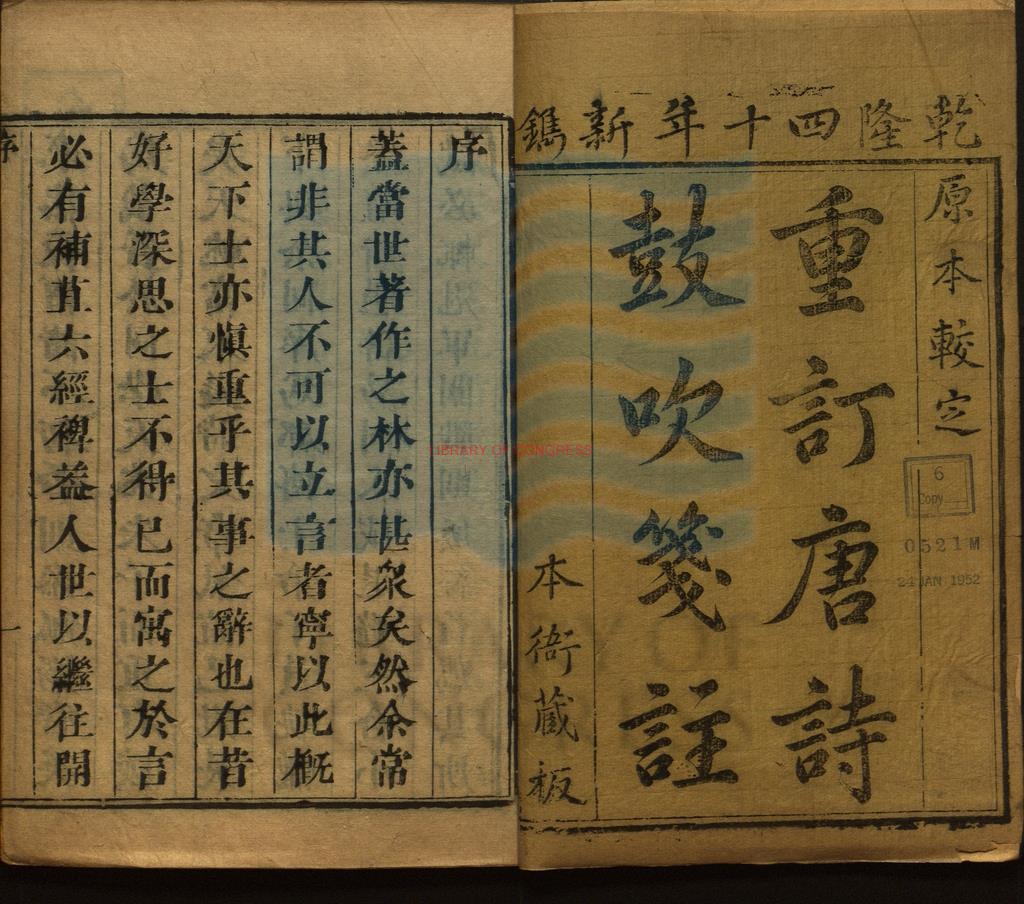 乾隆四十年新鐫
原本較定
重訂唐詩
鼓吹箋註
本衙藏板
6
Copy
0521M
24 JAN 1952
LIBRARY OF CONGRESS
序
蓋當世著作之林亦甚衆矣然余常
謂非其人不可以立言者寧以此槪
天下士亦愼重乎其事之辭也在昔
好學深思之士不得已而寓之於言
必有補苴六經裨益人世以繼往開
序
一